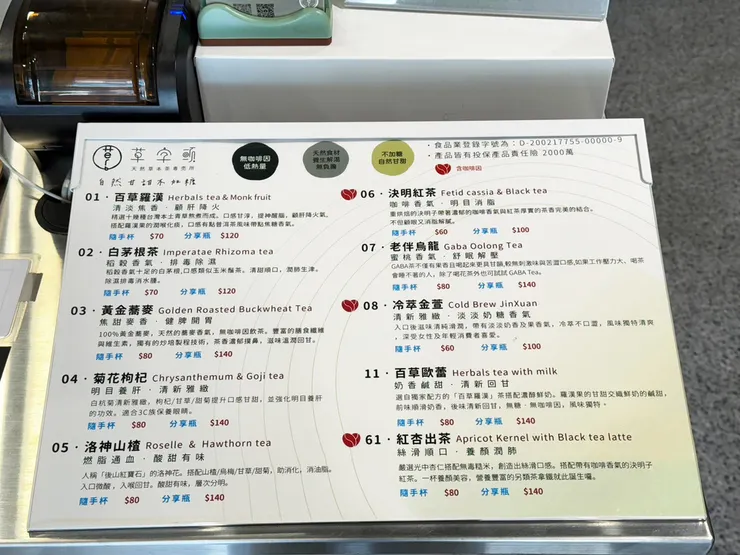 草字頭
天然草本茶專賣所
自然甘甜不加糖
無咖啡因
低熱量
天然食材
養生鮮滋
無負擔
不加糖
自然甘甜
・食品業登錄字號為：D-200217755-00000-9
・產品皆有投保產品責任險 2000萬
含咖啡因
01・百草羅漢 Herbals tea & Monk fruit
清淡焦香・顧肝降火
精選十幾種台灣本土青草熬煮而成。口感甘淳，提神醒腦，顧肝降火氣，
搭配羅漢果的潤喉化痰，口感有點普洱茶風味帶點焦糖香氣。
隨手杯 $70 分享瓶 $120
02・白茅根茶 Imperatae Rhizoma tea
稻穀香氣・排毒除濕
稻穀香氣十足的白茅根，口感類似玉米鬚茶。清甜順口，潤肺生津。
除濕排毒消水腫。
隨手杯 $70 分享瓶 $120
03・黃金蕎麥 Golden Roasted Buckwheat Tea
焦甜麥香・健脾開胃
100%黃金蕎麥，天然的蕎麥香氣，無咖啡因飲茶。豐富的膳食纖維
與維生素，獨有的炒培製程技術，茶香濃郁撲鼻，滋味溫潤回甘。
隨手杯 $80 分享瓶 $140
04・菊花枸杞 Chrysanthemum & Goji tea
明目養肝・清新雅緻
白杭菊清新雅緻，枸杞/甘草/甜菊提升口感甘甜，並強化明目養肝
的功效。適合3C族保養眼睛。
隨手杯 $80 分享瓶 $140
05・洛神山楂 Roselle & Hawthorn tea
燃脂通血・酸甜有味
人稱「後山紅寶石」的洛神花。搭配山楂/烏梅/甘草/甜菊，助消化，消油脂。
入口微酸，入喉回甘。酸甜有味，層次分明。
隨手杯 $80 分享瓶 $140
06・決明紅茶 Fetid cassia & Black tea
咖啡香氣・明目消脂
重烘焙的決明子帶著濃郁的咖啡香氣與紅茶厚實的茶香完美的結合。
不但顧眼又消脂解膩。
隨手杯 $60 分享瓶 $100
07・老伴烏龍 Gaba Oolong Tea
蜜桃香氣・舒眠解壓
GABA茶不僅有果香且喝起來更具甘韻，較無刺激味與苦澀口感，如果工作壓力大、喝茶
會睡不著的人，除了喝花茶外也可試試GABA Tea。
隨手杯 $80 分享瓶 $140
08・冷萃金萱 Cold Brew JinXuan
清新雅緻・淡淡奶糖香氣
入口後滋味清純滑潤，帶有淡淡奶香及果香氣，冷萃不口澀，風味獨特清爽
，深受女性及年輕消費者喜愛。
隨手杯 $60 分享瓶 $100
11・百草歐蕾 Herbals tea with milk
奶香鹹甜・清新回甘
選自獨家配方的「百草羅漢」茶搭配濃醇鮮奶。羅漢果的甘甜交織鮮奶的鹹甜，
前味順滑奶香，後味清新回甘，無糖、無咖啡因，風味獨特。
隨手杯 $80 分享瓶 $140
61・紅杏出茶 Apricot Kernel with Black tea latte
絲滑順口・養顏潤肺
嚴選光中杏仁搭配無毒糙米，創造出絲滑口感。搭配帶有咖啡香氣的決明子
紅茶。一杯養顏美容，營養豐富的另類茶拿鐵就此誕生囉。
隨手杯 $80 分享瓶 $140